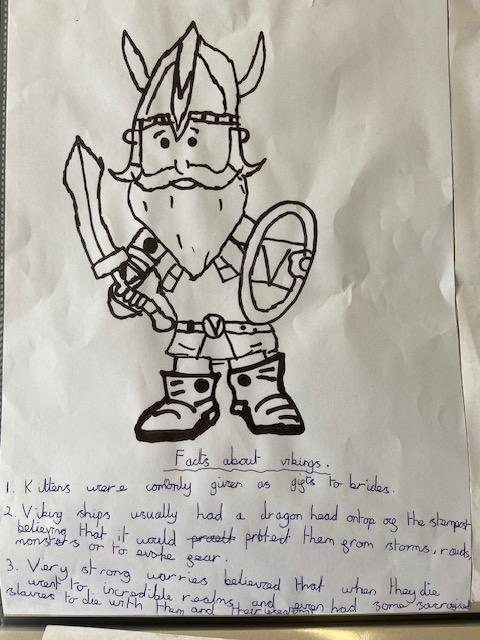 V
Facts about vikings.
1. Kittens were comonly given as gifts to brides.
2. Viking ships usually had a dragon head ontop of the stempost
believing that it would protect them from storms, raids,
monsters or to evoke fear.
3. Very strong worries believed that when they die
went to incredible realms and even had some
slavies to die with them and their